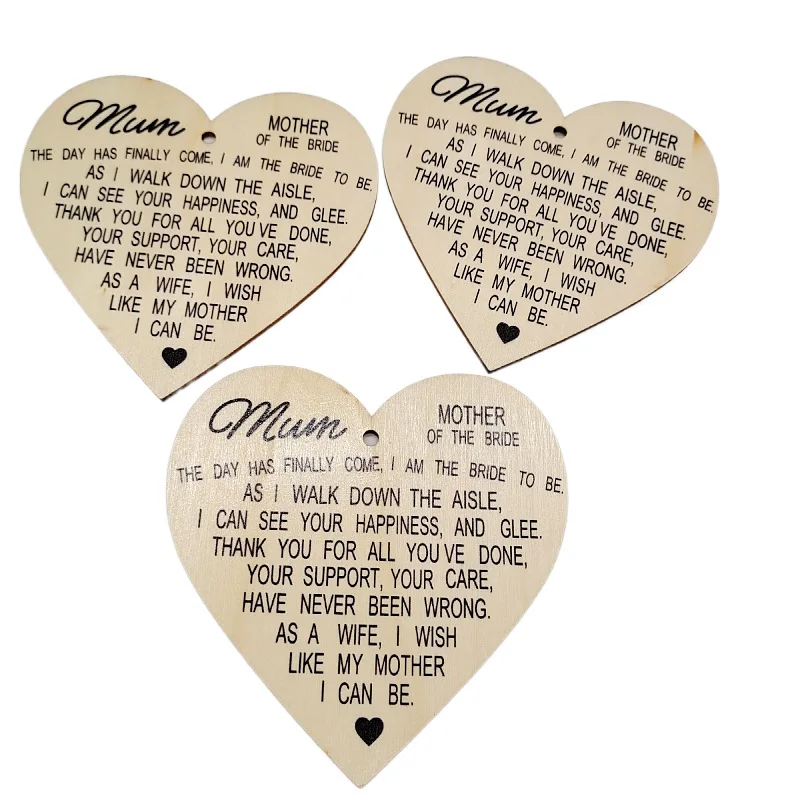 Mum
MOTHER
OF THE BRIDE
THE DAY HAS FINALLY COME, I AM THE BRIDE TO BE.
AS I WALK DOWN THE AISLE,
I CAN SEE YOUR HAPPINESS, AND GLEE.
THANK YOU FOR ALL YOU'VE DONE,
YOUR SUPPORT, YOUR CARE,
HAVE NEVER BEEN WRONG.
AS A WIFE, I WISH
LIKE MY MOTHER
I CAN BE.
Mum
MOTHER
OF THE BRIDE
THE DAY HAS FINALLY COME, I AM THE BRIDE TO BE.
AS I WALK DOWN THE AISLE,
I CAN SEE YOUR HAPPINESS, AND GLEE.
THANK YOU FOR ALL YOU'VE DONE,
YOUR SUPPORT, YOUR CARE,
HAVE NEVER BEEN WRONG.
AS A WIFE, I WISH
LIKE MY MOTHER
I CAN BE.
Mum
MOTHER
OF THE BRIDE
THE DAY HAS FINALLY COME, I AM THE BRIDE TO BE.
AS I WALK DOWN THE AISLE,
I CAN SEE YOUR HAPPINESS, AND GLEE.
THANK YOU FOR ALL YOU'VE DONE,
YOUR SUPPORT, YOUR CARE,
HAVE NEVER BEEN WRONG.
AS A WIFE, I WISH
LIKE MY MOTHER
I CAN BE.